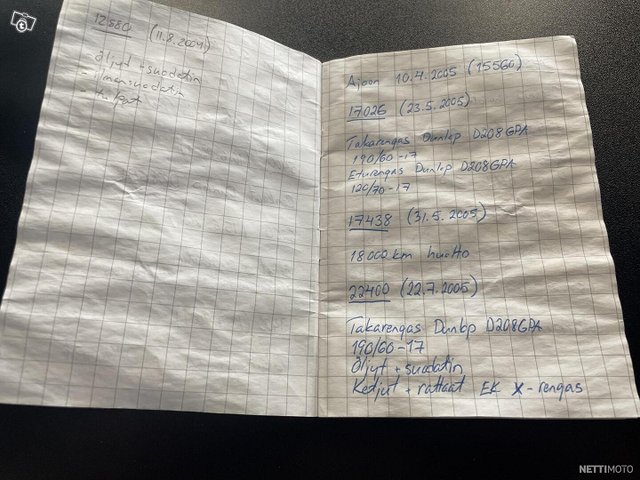 12580 (11.8.2004)
Öljyt + suodatin
- ilmansuodatin
- tulpat
Ajoon 10.4.2005 (15560)
17026 (23.5.2005)
Takarengas Dunlop D208GPA
190/60-17
Eturengas Dunlop D208GPA
120/70-17
17438 (31.5.2005)
18000 km huolto
22400 (22.7.2005)
Takarengas Dunlop D208GPA
190/60-17
Öljyt + suodatin
Ketjut + rattaat EK X-rengas
NETTIMOTO